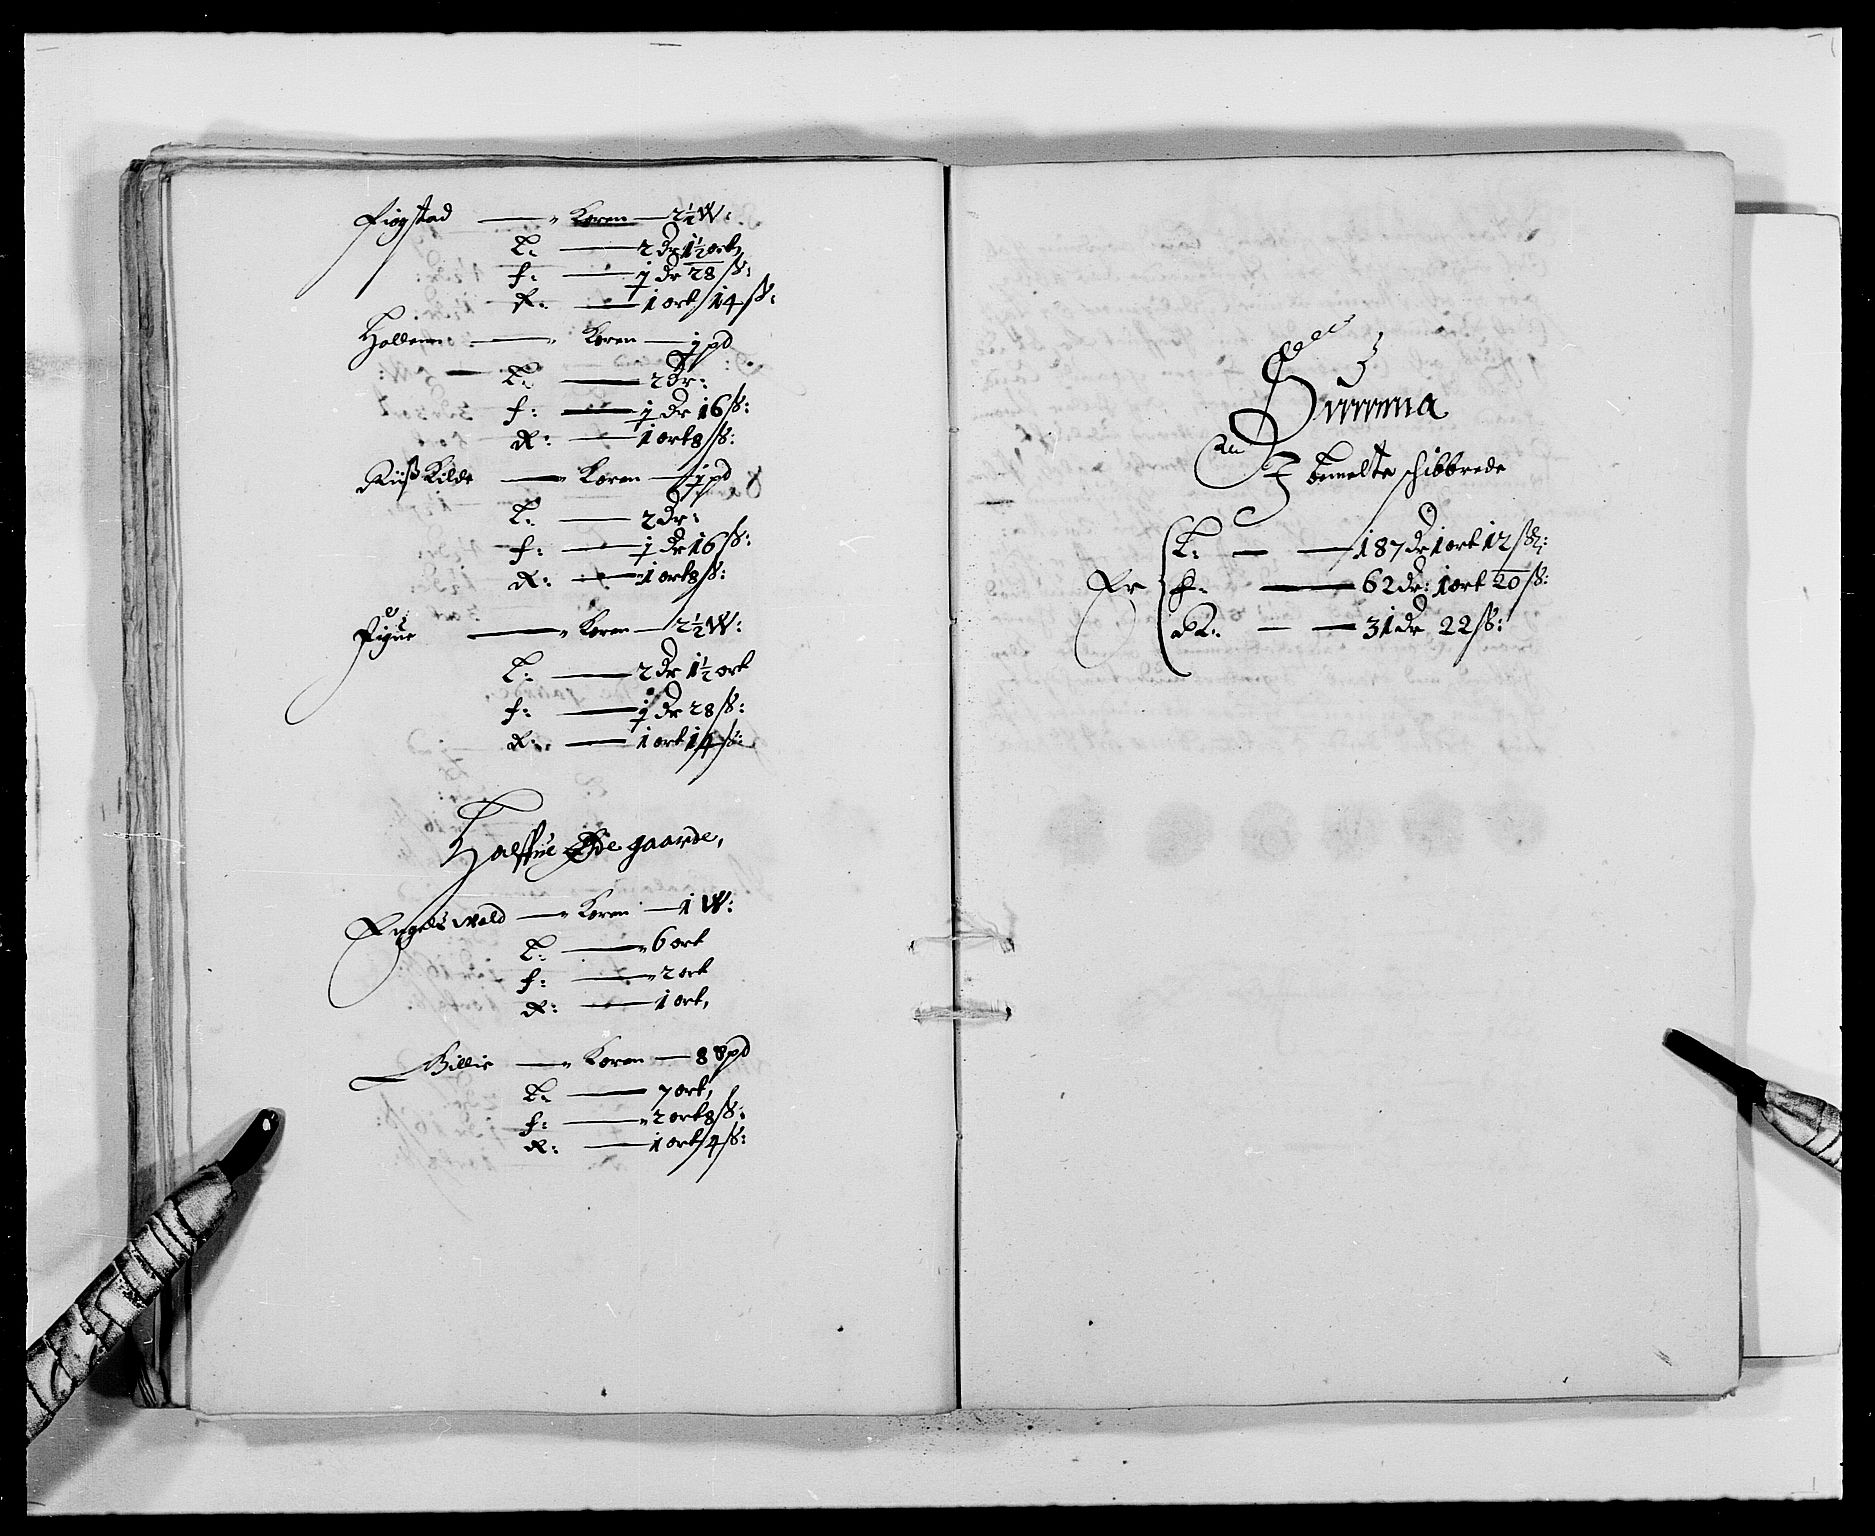 Fiogstad — Koren — 2½ W:
L: — 2 dr 1½ ort,
f: — j dr 28 ß:
R: — 1 ort 14 ß:
Hollenn — Koren — j pd
L: — 2 dr:
f: — j dr 16 ß:
R: — 1 ort 8 ß:
Riißkilde — Koren — j pd
L: — 2 dr:
f: — j dr 16 ß:
R: — 1 ort 8 ß:
— Koren — 2½ W:
L: — 2 dr 1½ ort
f: — j dr 28 ß:
R: — 1 ort 14 ß:
Halffue Øde gaarde,
Engelsvold — Koren — 1 W:
L: — 6 ort
f: — 2 ort
R: — 1 ort,
Billie — Koren — 8 pd
L: — 7 ort,
f: — 2 ort 8 ß:
R: — 1 ort 4 ß:
Summa
I bemelte schibbrede
Er
L: — 187 dr 1 ort 12 ß:
f: — 62 dr: 1 ort 20 ß:
R: — 31 dr 22 ß: